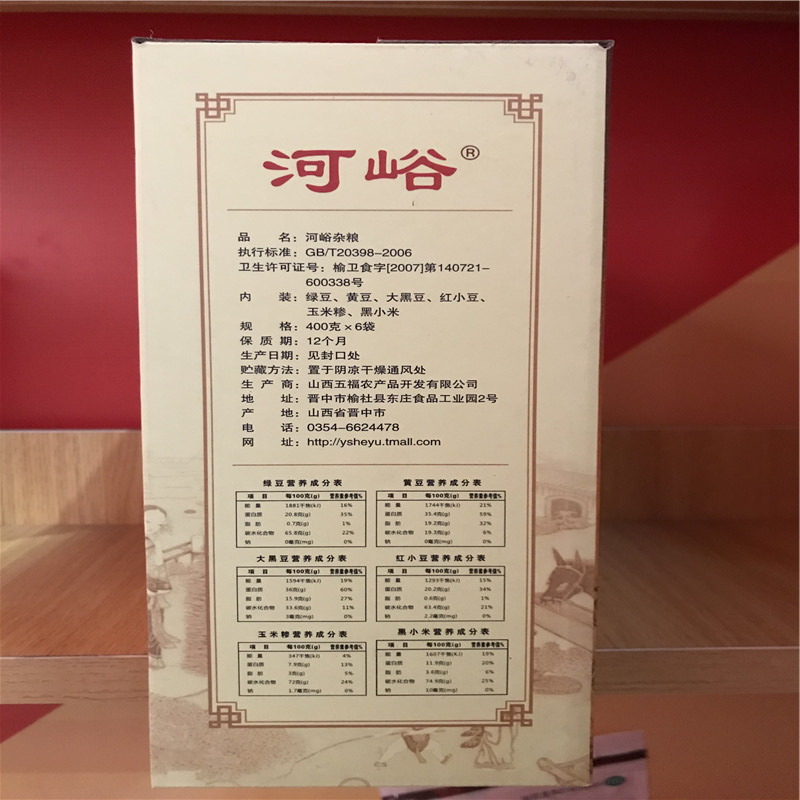 河峪®
品 名：河峪杂粮
执行标准：GB/T20398-2006
卫生许可证号：榆卫食字[2007]第140721-
600338号
内 装：绿豆、黄豆、大黑豆、红小豆、
玉米糁、黑小米
规 格：400克×6袋
保 质 期：12个月
生产日期：见封口处
贮藏方法：置于阴凉干燥通风处
生 产 商：山西五福农产品开发有限公司
地 址：晋中市榆社县东庄食品工业园2号
产 地：山西省晋中市
电 话：0354-6624478
网 址：http://ysheyu.tmall.com
绿豆营养成分表
项 目 每100克(g) 营养素参考值%
能 量 1881千焦(kJ) 16%
蛋白质 20.8克(g) 35%
脂 肪 0.7克(g) 1%
碳水化合物 65.8克(g) 22%
钠 0毫克(mg) 0%
黄豆营养成分表
项 目 每100克(g) 营养素参考值%
能 量 1744千焦(kJ) 21%
蛋白质 35.4克(g) 59%
脂 肪 19.2克(g) 32%
碳水化合物 19.3克(g) 6%
钠 0毫克(mg) 0%
大黑豆营养成分表
项 目 每100克(g) 营养素参考值%
能 量 1594千焦(kJ) 19%
蛋白质 36克(g) 60%
脂 肪 15.9克(g) 27%
碳水化合物 33.6克(g) 11%
钠 3毫克(mg) 0%
红小豆营养成分表
项 目 每100克(g) 营养素参考值%
能 量 1293千焦(kJ) 15%
蛋白质 20.2克(g) 34%
脂 肪 0.6克(g) 1%
碳水化合物 63.4克(g) 21%
钠 2.2毫克(mg) 0%
玉米糁营养成分表
项 目 每100克(g) 营养素参考值%
能 量 347千焦(kJ) 4%
蛋白质 7.9克(g) 13%
脂 肪 3克(g) 5%
碳水化合物 72克(g) 24%
钠 1.7毫克(mg) 0%
黑小米营养成分表
项 目 每100克(g) 营养素参考值%
能 量 1607千焦(kJ) 19%
蛋白质 11.9克(g) 20%
脂 肪 3.6克(g) 6%
碳水化合物 74.9克(g) 25%
钠 10毫克(mg) 0%